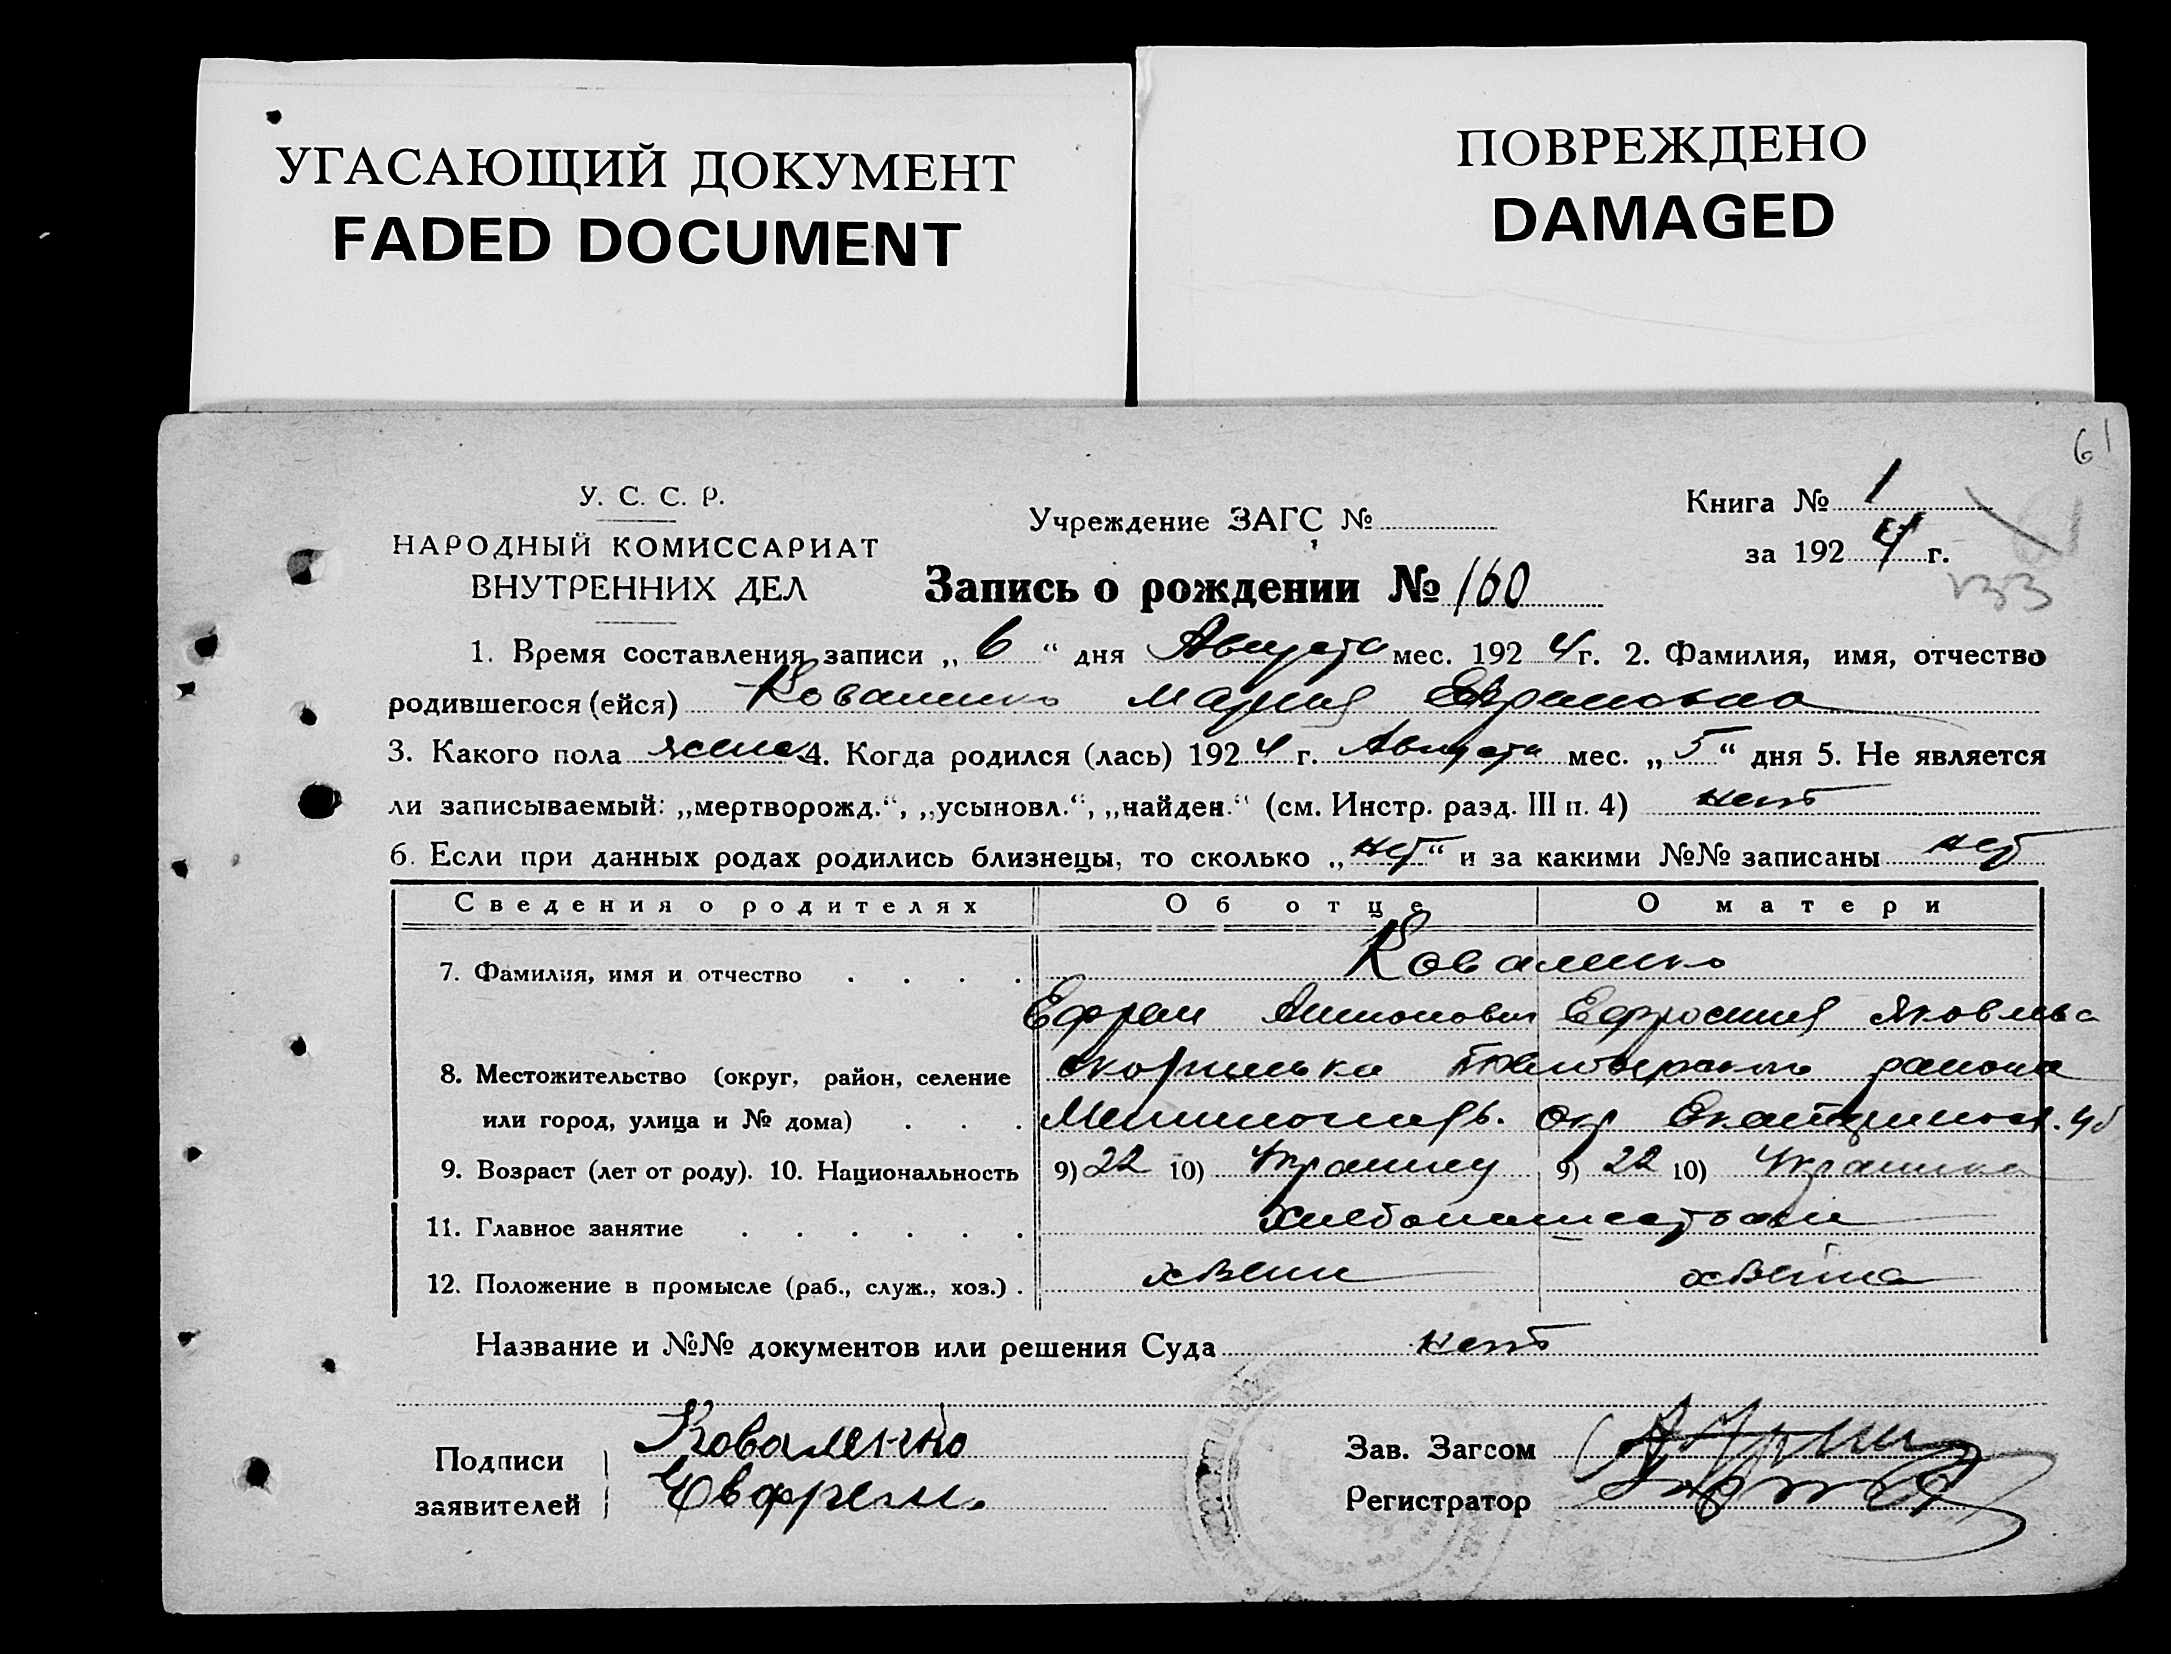 УГАСАЮЩИЙ ДОКУМЕНТ
FADED DOCUMENT
ПОВРЕЖДЕНО
DAMAGED
61
У. С. С. Р.
НАРОДНЫЙ КОМИССАРИАТ
ВНУТРЕННИХ ДЕЛ
Учреждение ЗАГС №
Книга № 1
за 1924 г.
133
Запись о рождении № 160
1. Время составления записи „6“ дня Августа мес. 1924 г. 2. Фамилия, имя, отчество
родившегося (ейся) Коваленко Мария
3. Какого пола женск 4. Когда родился (лась) 1924 г. Августа мес. „5“ дня 5. Не является
ли записываемый: „мертворожд.“, „усыновл.“, „найден.“ (см. Инстр. разд. III п. 4) нет
6. Если при данных родах родились близнецы, то сколько „нет“ и за какими №№ записаны нет
Сведения о родителях Об отце О матери
7. Фамилия, имя и отчество Коваленко
Ефрем Ефросиния Яковлевна
8. Местожительство (округ, район, селение района
или город, улица и № дома) Окр
9. Возраст (лет от роду). 10. Национальность 9) 22 10) Украинец 9) 22 10) Украинка
11. Главное занятие
12. Положение в промысле (раб., служ., хоз.)
Название и №№ документов или решения Суда нет
Подписи заявителей
Коваленко
Евфрем.
Зав. Загсом
Регистратор